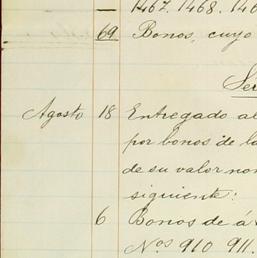 1467. 1468. 146
69 Bonos, cuyo
Ser
Agosto 18 Entregado al
por bonos de la
de su valor non
siguiente:
6 Bonos de á
Nos 910 911.